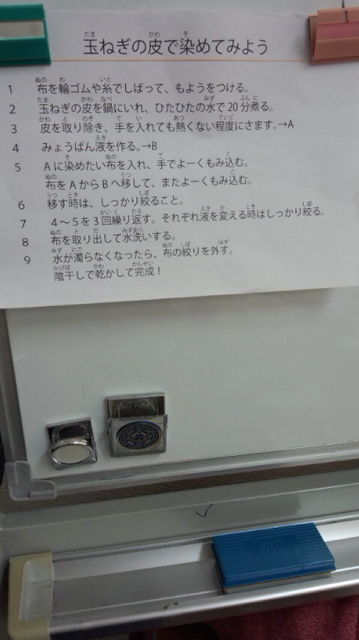 玉ねぎの皮で染めてみよう
1 布を輪ゴムや糸でしばって、もようをつける。
2 玉ねぎの皮を鍋にいれ、ひたひたの水で20分煮る。
3 皮を取り除き、手を入れても熱くない程度にさます。→A
4 みょうばん液を作る。→B
5 Aに染めたい布を入れ、手でよーくもみ込む。
布をAからBへ移して、またよーくもみ込む。
6 移す時は、しっかり絞ること。
7 4～5を3回繰り返す。それぞれ液を変える時はしっかり絞る。
8 布を取り出して水洗いする。
9 水が濁らなくなったら、布の絞りを外す。
陰干しで乾かして完成！